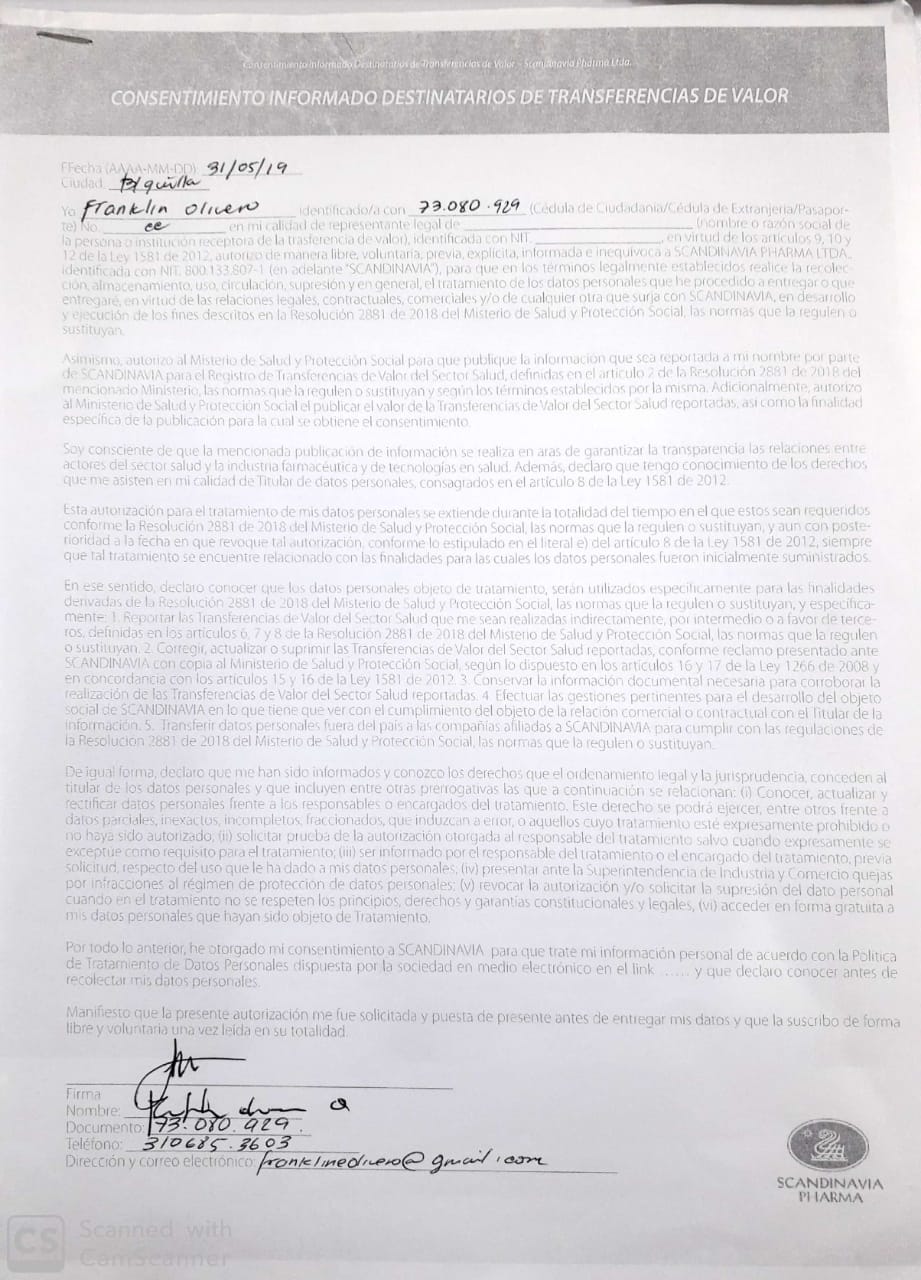 Consentimiento Informado Destinatarios de Transferencias de Valor – Scandinavia Pharma Ltda.
CONSENTIMIENTO INFORMADO DESTINATARIOS DE TRANSFERENCIAS DE VALOR
FFecha (AAAA-MM-DD): 31/05/19
Ciudad: B/quilla
Yo Franklin Olivero identificado/a con 73.080.929 (Cédula de Ciudadanía/Cédula de Extranjería/Pasapor-
te) No. cc en mi calidad de representante legal de (nombre o razón social de
la persona o institución receptora de la trasferencia de valor), identificada con NIT. , en virtud de los artículos 9, 10 y
12 de la Ley 1581 de 2012, autorizo de manera libre, voluntaria, previa, explícita, informada e inequívoca a SCANDINAVIA PHARMA LTDA.,
identificada con NIT. 800.133.807-1 (en adelante "SCANDINAVIA"), para que en los términos legalmente establecidos realice la recolec-
ción, almacenamiento, uso, circulación, supresión y en general, el tratamiento de los datos personales que he procedido a entregar o que
entregaré, en virtud de las relaciones legales, contractuales, comerciales y/o de cualquier otra que surja con SCANDINAVIA, en desarrollo
y ejecución de los fines descritos en la Resolución 2881 de 2018 del Misterio de Salud y Protección Social, las normas que la regulen o
sustituyan.
Asimismo, autorizo al Misterio de Salud y Protección Social para que publique la información que sea reportada a mi nombre por parte
de SCANDINAVIA para el Registro de Transferencias de Valor del Sector Salud, definidas en el artículo 2 de la Resolución 2881 de 2018 del
mencionado Ministerio, las normas que la regulen o sustituyan y según los términos establecidos por la misma. Adicionalmente, autorizo
al Ministerio de Salud y Protección Social el publicar el valor de la Transferencias de Valor del Sector Salud reportadas, así como la finalidad
específica de la publicación para la cual se obtiene el consentimiento.
Soy consciente de que la mencionada publicación de información se realiza en aras de garantizar la transparencia las relaciones entre
actores del sector salud y la industria farmacéutica y de tecnologías en salud. Además, declaro que tengo conocimiento de los derechos
que me asisten en mi calidad de Titular de datos personales, consagrados en el artículo 8 de la Ley 1581 de 2012.
Esta autorización para el tratamiento de mis datos personales se extiende durante la totalidad del tiempo en el que estos sean requeridos
conforme la Resolución 2881 de 2018 del Misterio de Salud y Protección Social, las normas que la regulen o sustituyan, y aun con poste-
rioridad a la fecha en que revoque tal autorización, conforme lo estipulado en el literal e) del artículo 8 de la Ley 1581 de 2012, siempre
que tal tratamiento se encuentre relacionado con las finalidades para las cuales los datos personales fueron inicialmente suministrados.
En ese sentido, declaro conocer que los datos personales objeto de tratamiento, serán utilizados específicamente para las finalidades
derivadas de la Resolución 2881 de 2018 del Misterio de Salud y Protección Social, las normas que la regulen o sustituyan, y específica-
mente: 1. Reportar las Transferencias de Valor del Sector Salud que me sean realizadas indirectamente, por intermedio o a favor de terce-
ros, definidas en los artículos 6, 7 y 8 de la Resolución 2881 de 2018 del Misterio de Salud y Protección Social, las normas que la regulen
o sustituyan. 2. Corregir, actualizar o suprimir las Transferencias de Valor del Sector Salud reportadas, conforme reclamo presentado ante
SCANDINAVIA con copia al Ministerio de Salud y Protección Social, según lo dispuesto en los artículos 16 y 17 de la Ley 1266 de 2008 y
en concordancia con los artículos 15 y 16 de la Ley 1581 de 2012. 3. Conservar la información documental necesaria para corroborar la
realización de las Transferencias de Valor del Sector Salud reportadas. 4. Efectuar las gestiones pertinentes para el desarrollo del objeto
social de SCANDINAVIA en lo que tiene que ver con el cumplimiento del objeto de la relación comercial o contractual con el Titular de la
información. 5. Transferir datos personales fuera del país a las compañías afiliadas a SCANDINAVIA para cumplir con las regulaciones de
la Resolución 2881 de 2018 del Misterio de Salud y Protección Social, las normas que la regulen o sustituyan.
De igual forma, declaro que me han sido informados y conozco los derechos que el ordenamiento legal y la jurisprudencia, conceden al
titular de los datos personales y que incluyen entre otras prerrogativas las que a continuación se relacionan: (i) Conocer, actualizar y
rectificar datos personales frente a los responsables o encargados del tratamiento. Este derecho se podrá ejercer, entre otros frente a
datos parciales, inexactos, incompletos, fraccionados, que induzcan a error, o aquellos cuyo tratamiento esté expresamente prohibido o
no haya sido autorizado; (ii) solicitar prueba de la autorización otorgada al responsable del tratamiento salvo cuando expresamente se
exceptúe como requisito para el tratamiento; (iii) ser informado por el responsable del tratamiento o el encargado del tratamiento, previa
solicitud, respecto del uso que le ha dado a mis datos personales; (iv) presentar ante la Superintendencia de Industria y Comercio quejas
por infracciones al régimen de protección de datos personales; (v) revocar la autorización y/o solicitar la supresión del dato personal
cuando en el tratamiento no se respeten los principios, derechos y garantías constitucionales y legales, (vi) acceder en forma gratuita a
mis datos personales que hayan sido objeto de Tratamiento.
Por todo lo anterior, he otorgado mi consentimiento a SCANDINAVIA para que trate mi información personal de acuerdo con la Política
de Tratamiento de Datos Personales dispuesta por la sociedad en medio electrónico en el link ...... y que declaro conocer antes de
recolectar mis datos personales.
Manifiesto que la presente autorización me fue solicitada y puesta de presente antes de entregar mis datos y que la suscribo de forma
libre y voluntaria una vez leída en su totalidad.
Firma
Nombre:
Documento: 73.080.929.
Teléfono: 310685.3603
Dirección y correo electrónico: franklinedivero@gmail.com
SCANDINAVIA
PHARMA
CS Scanned with
CamScanner